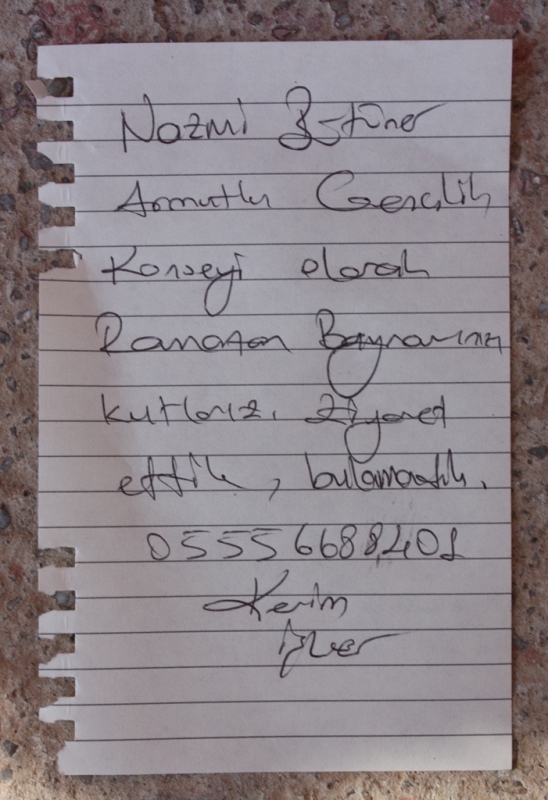 Nazmi
Armutlu Gençlik
Konseyi olarak
Ramazan Bayramınızı
kutlarız. Ziyaret
ettik, bulamadık.
0555 668 8401
Kerim